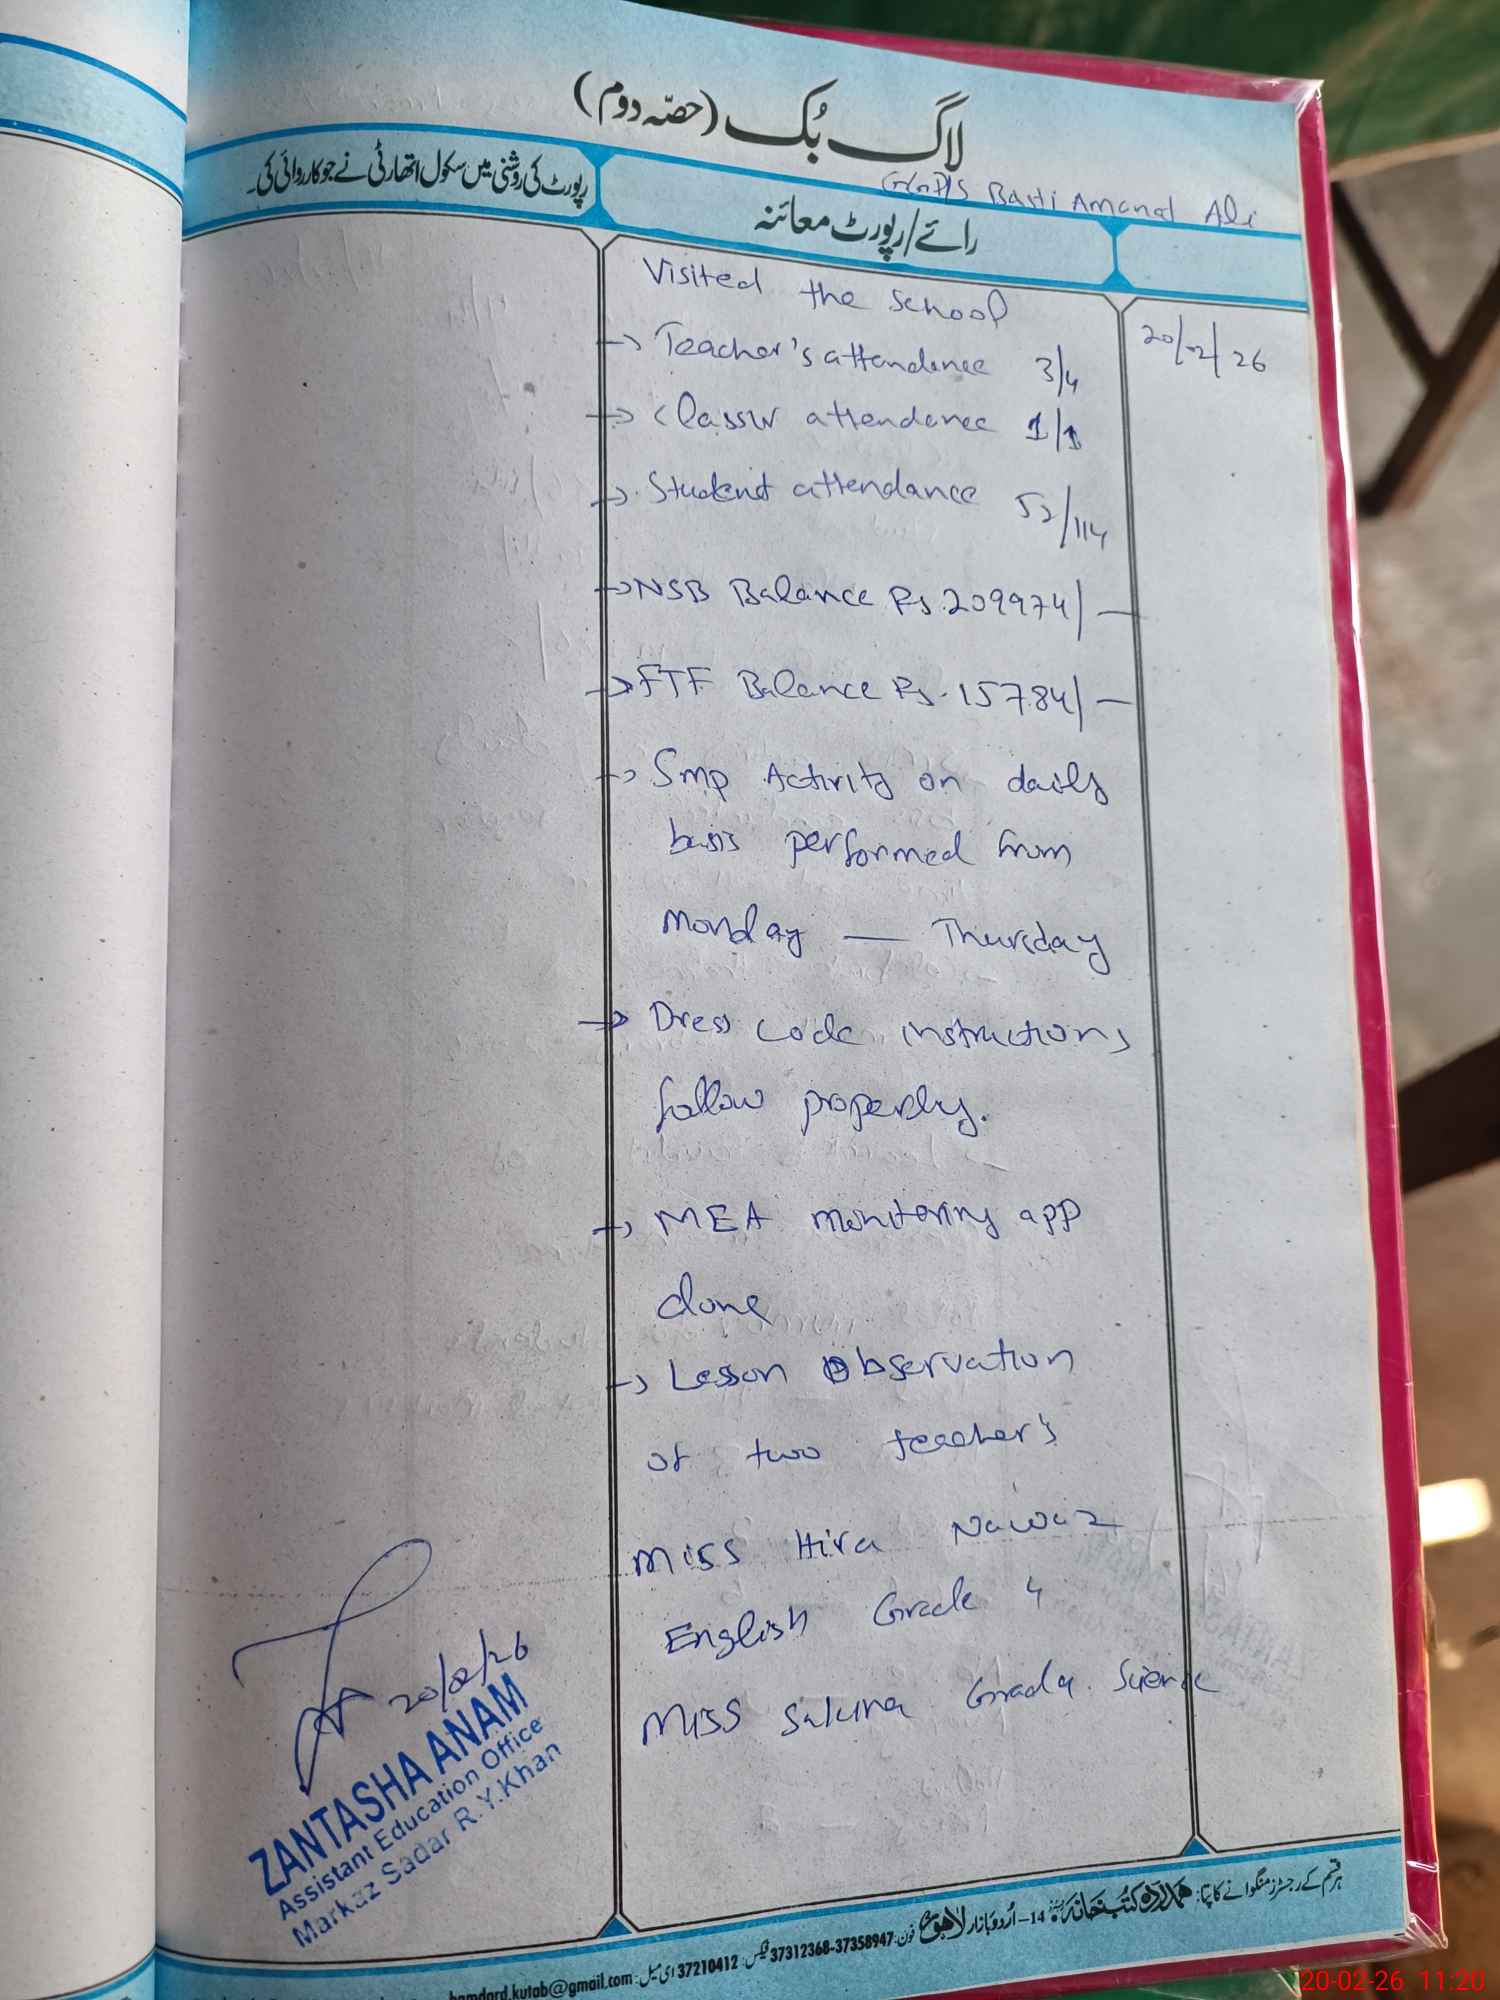 لاگ بُک (حصّہ دوم)
GGPS Basti Amanat Ali
رائے/رپورٹ معائنہ
رپورٹ کی روشنی میں سکول اتھارٹی نے جو کارروائی کی۔
20/02/26
Visited the school
→ Teacher's attendence 3/4
→ Classiv attendence 1/1
→ Student attendance 52/114
→ NSB Balance Rs. 209974/—
→ FTF Balance Rs. 15784/—
→ Smp Activity on daily
basis performed from
Monday — Thursday
→ Dress code instructions
follow properly.
→ MEA monitoring app
done
→ Lesson Observation
of two teacher's
Miss Hira Nawaz
English Grade 4
Miss Sakina Grade Science
20/02/26
ZANTASHA ANAM
Assistant Education Office
Markaz Sadar R.Y.Khan
ہر قسم کے رجسٹرز منگوانے کا پتا: ہمدرد کتب خانہ 14-اُردو بازار لاہور فون: 37312368-37358947 فیکس: 37210412 ای میل: hamdard.kutab@gmail.com
20-02-26 11:20